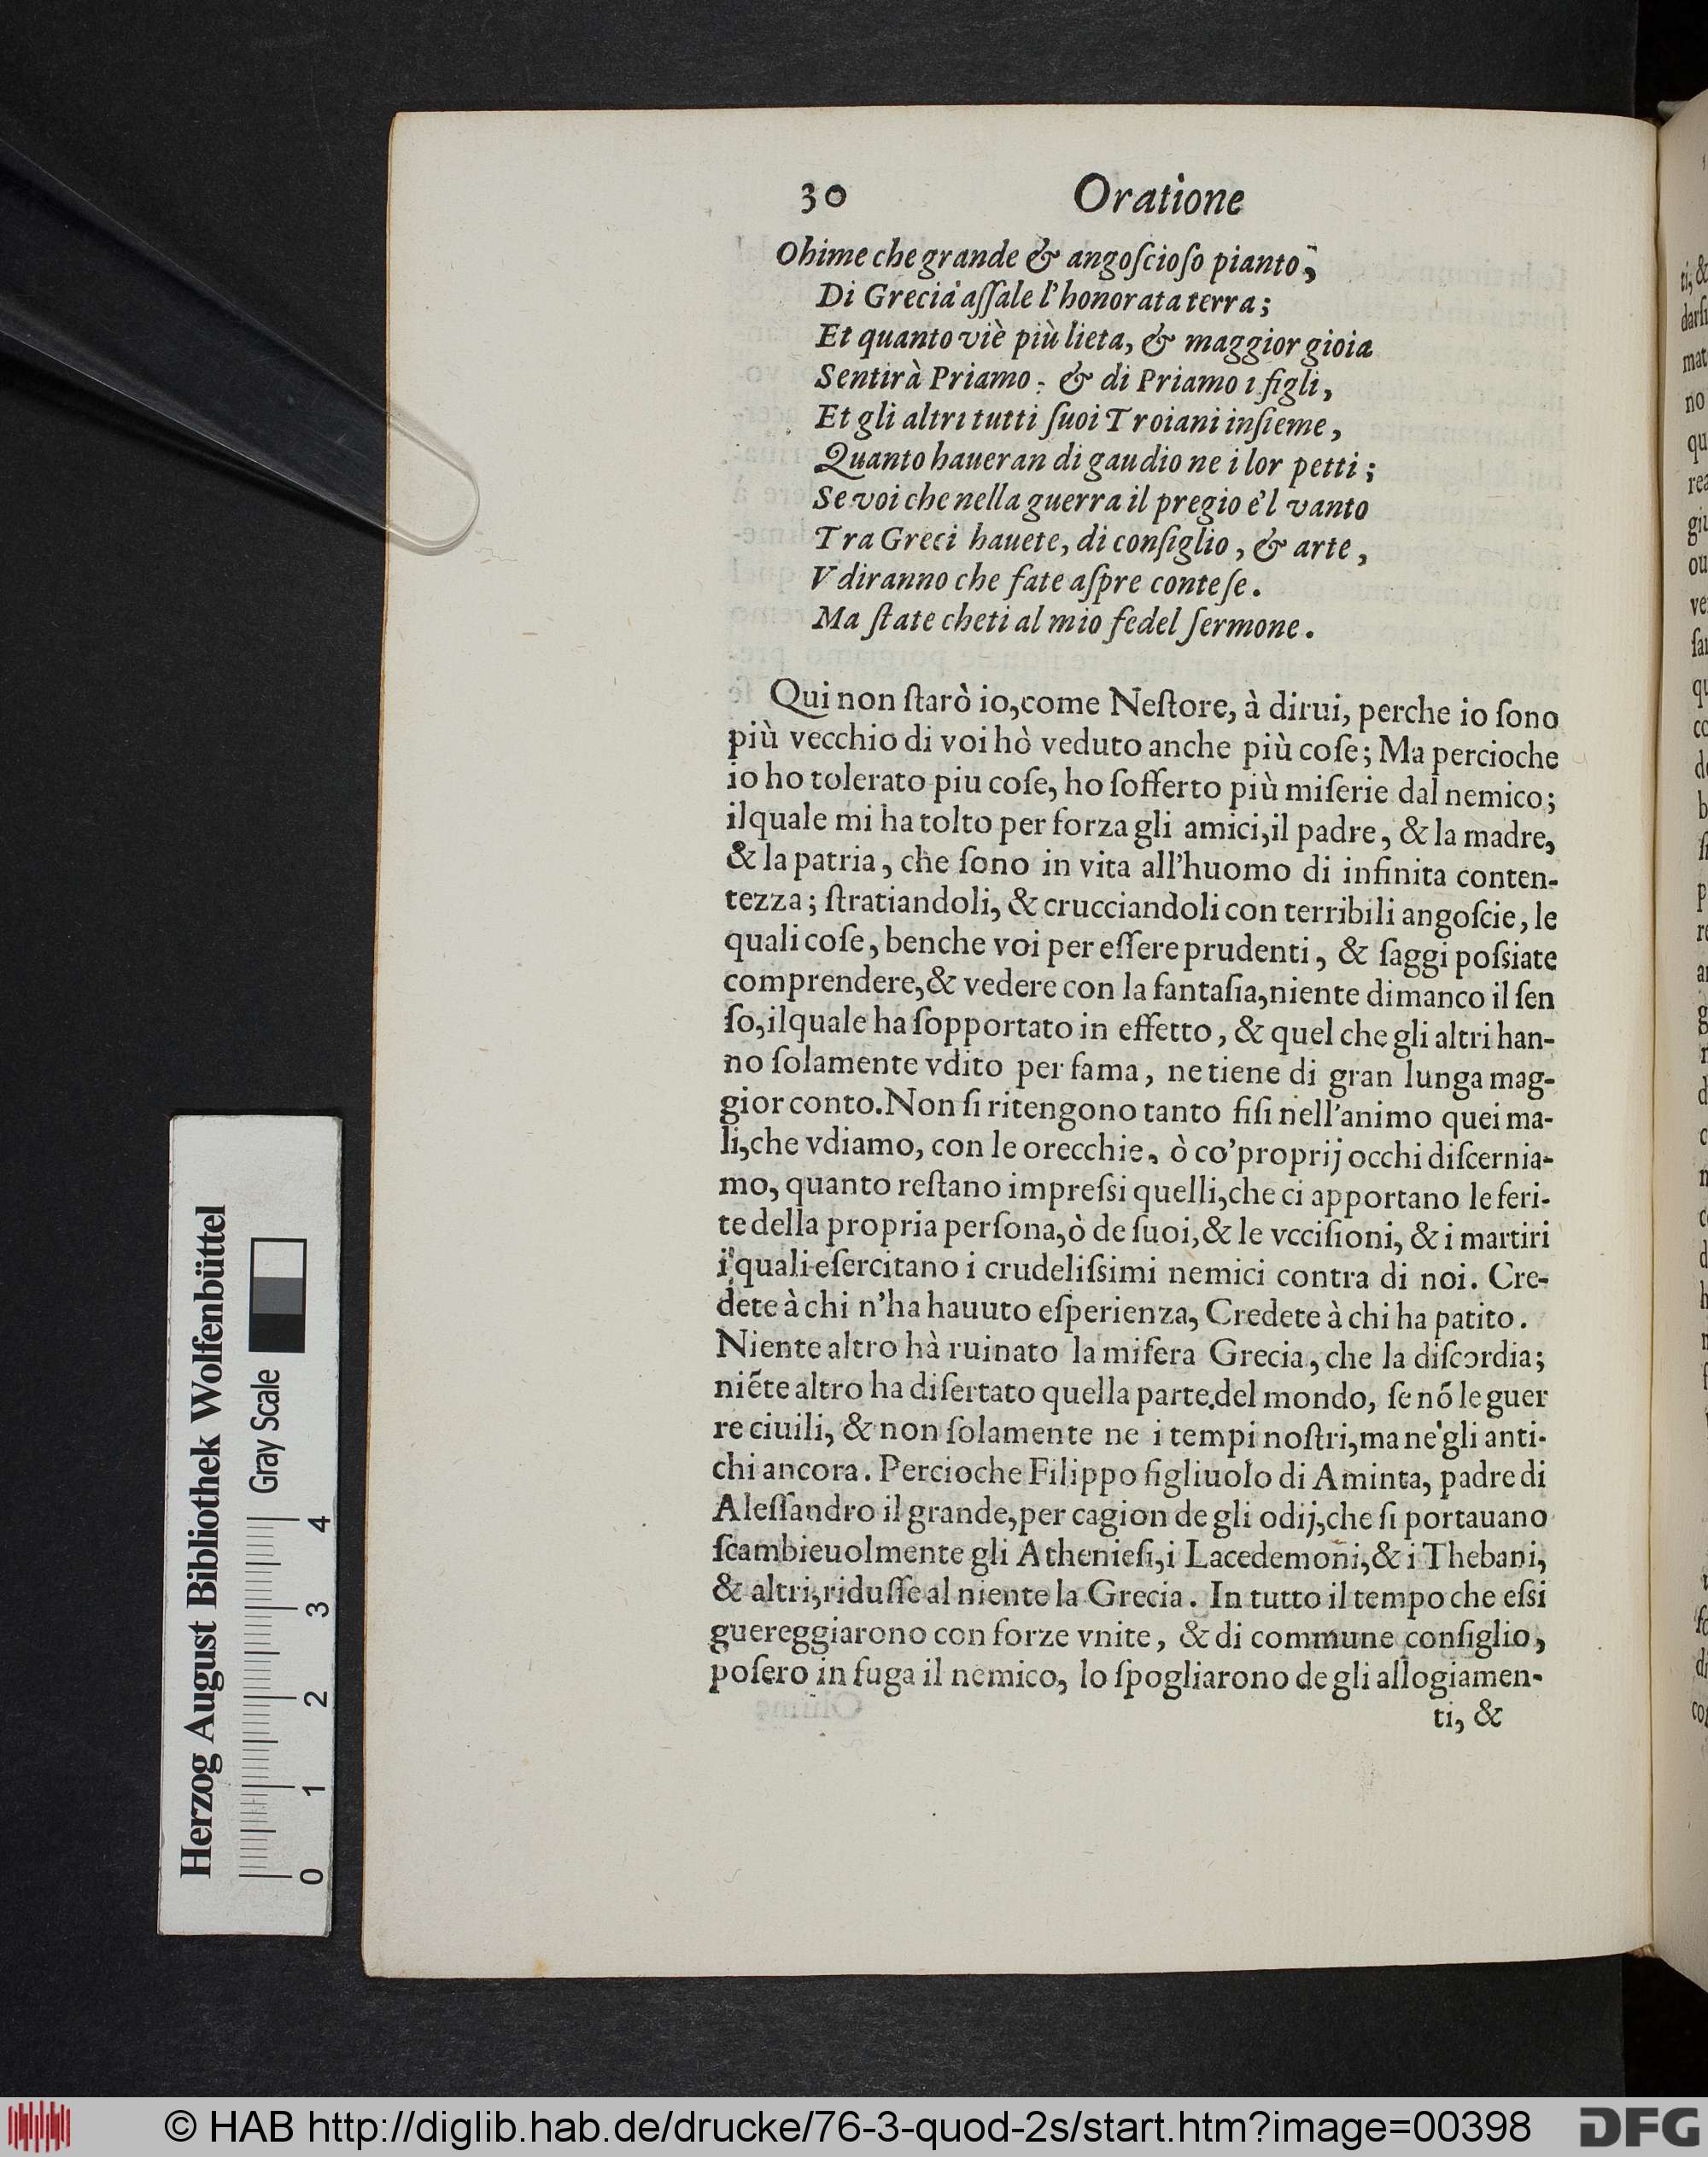 30 Oratione
Ohime che grande & angoſcioſo pianto,
Di Grecia aſſale l'honorata terra;
Et quanto viè più lieta, & maggior gioia
Sentirà Priamo, & di Priamo i figli,
Et gli altri tutti ſuoi Troiani inſieme,
Quanto haueran di gaudio ne i lor petti;
Se voi che nella guerra il pregio e'l vanto
Tra Greci hauete, di conſiglio, & arte,
Vdiranno che fate aſpre conteſe.
Ma ſtate cheti al mio fedel ſermone.
Qui non ſtarò io, come Neſtore, à dirui, perche io ſono
più vecchio di voi hò veduto anche più coſe; Ma percioche
io ho tolerato piu coſe, ho ſofferto più miſerie dal nemico;
ilquale mi ha tolto per forza gli amici, il padre, & la madre,
& la patria, che ſono in vita all'huomo di infinita conten-
tezza; ſtratiandoli, & crucciandoli con terribili angoſcie, le
quali coſe, benche voi per eſſere prudenti, & ſaggi poſsiate
comprendere, & vedere con la fantaſia, niente dimanco il ſen
ſo, ilquale ha ſopportato in effetto, & quel che gli altri han-
no ſolamente vdito per fama, ne tiene di gran lunga mag-
gior conto. Non ſi ritengono tanto fiſi nell'animo quei ma-
li, che vdiamo, con le orecchie, ò co' proprij occhi diſcernia-
mo, quanto reſtano impreſsi quelli, che ci apportano le feri-
te della propria perſona, ò de ſuoi, & le vcciſioni, & i martiri
i quali eſercitano i crudeliſsimi nemici contra di noi. Cre-
dete à chi n'ha hauuto eſperienza, Credete à chi ha patito.
Niente altro hà ruinato la miſera Grecia, che la diſcordia;
niẽte altro ha diſertato quella parte del mondo, ſe nõ le guer
re ciuili, & non ſolamente ne i tempi noſtri, ma ne' gli anti-
chi ancora. Percioche Filippo figliuolo di Aminta, padre di
Aleſſandro il grande, per cagion de gli odij, che ſi portauano
ſcambieuolmente gli Athenieſi, i Lacedemoni, & i Thebani,
& altri, riduſſe al niente la Grecia. In tutto il tempo che eſsi
guereggiarono con forze vnite, & di commune conſiglio,
poſero in fuga il nemico, lo ſpogliarono de gli allogiamen-
ti, &
Herzog August Bibliothek Wolfenbüttel
Gray Scale
0 1 2 3 4
© HAB http://diglib.hab.de/drucke/76-3-quod-2s/start.htm?image=00398
DFG